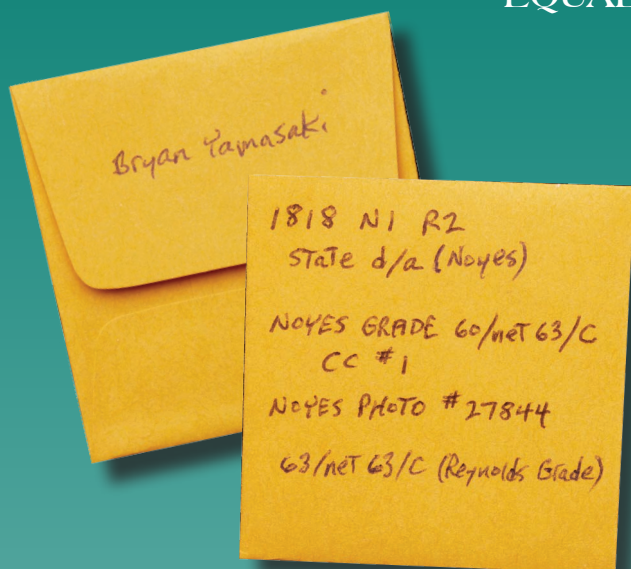 EQUAL
Bryan Yamasaki
1818 N1 R2
State d/a (Noyes)
NOYES GRADE 60/net 63/C
CC #1
NOYES PHOTO #27844
63/net 63/C (Reynolds Grade)